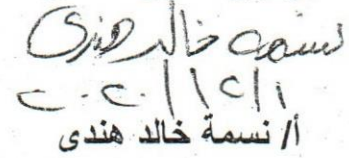 نسمه خالد هندى
٢٠٢٠/١٢/١
أ/ نسمة خالد هندى